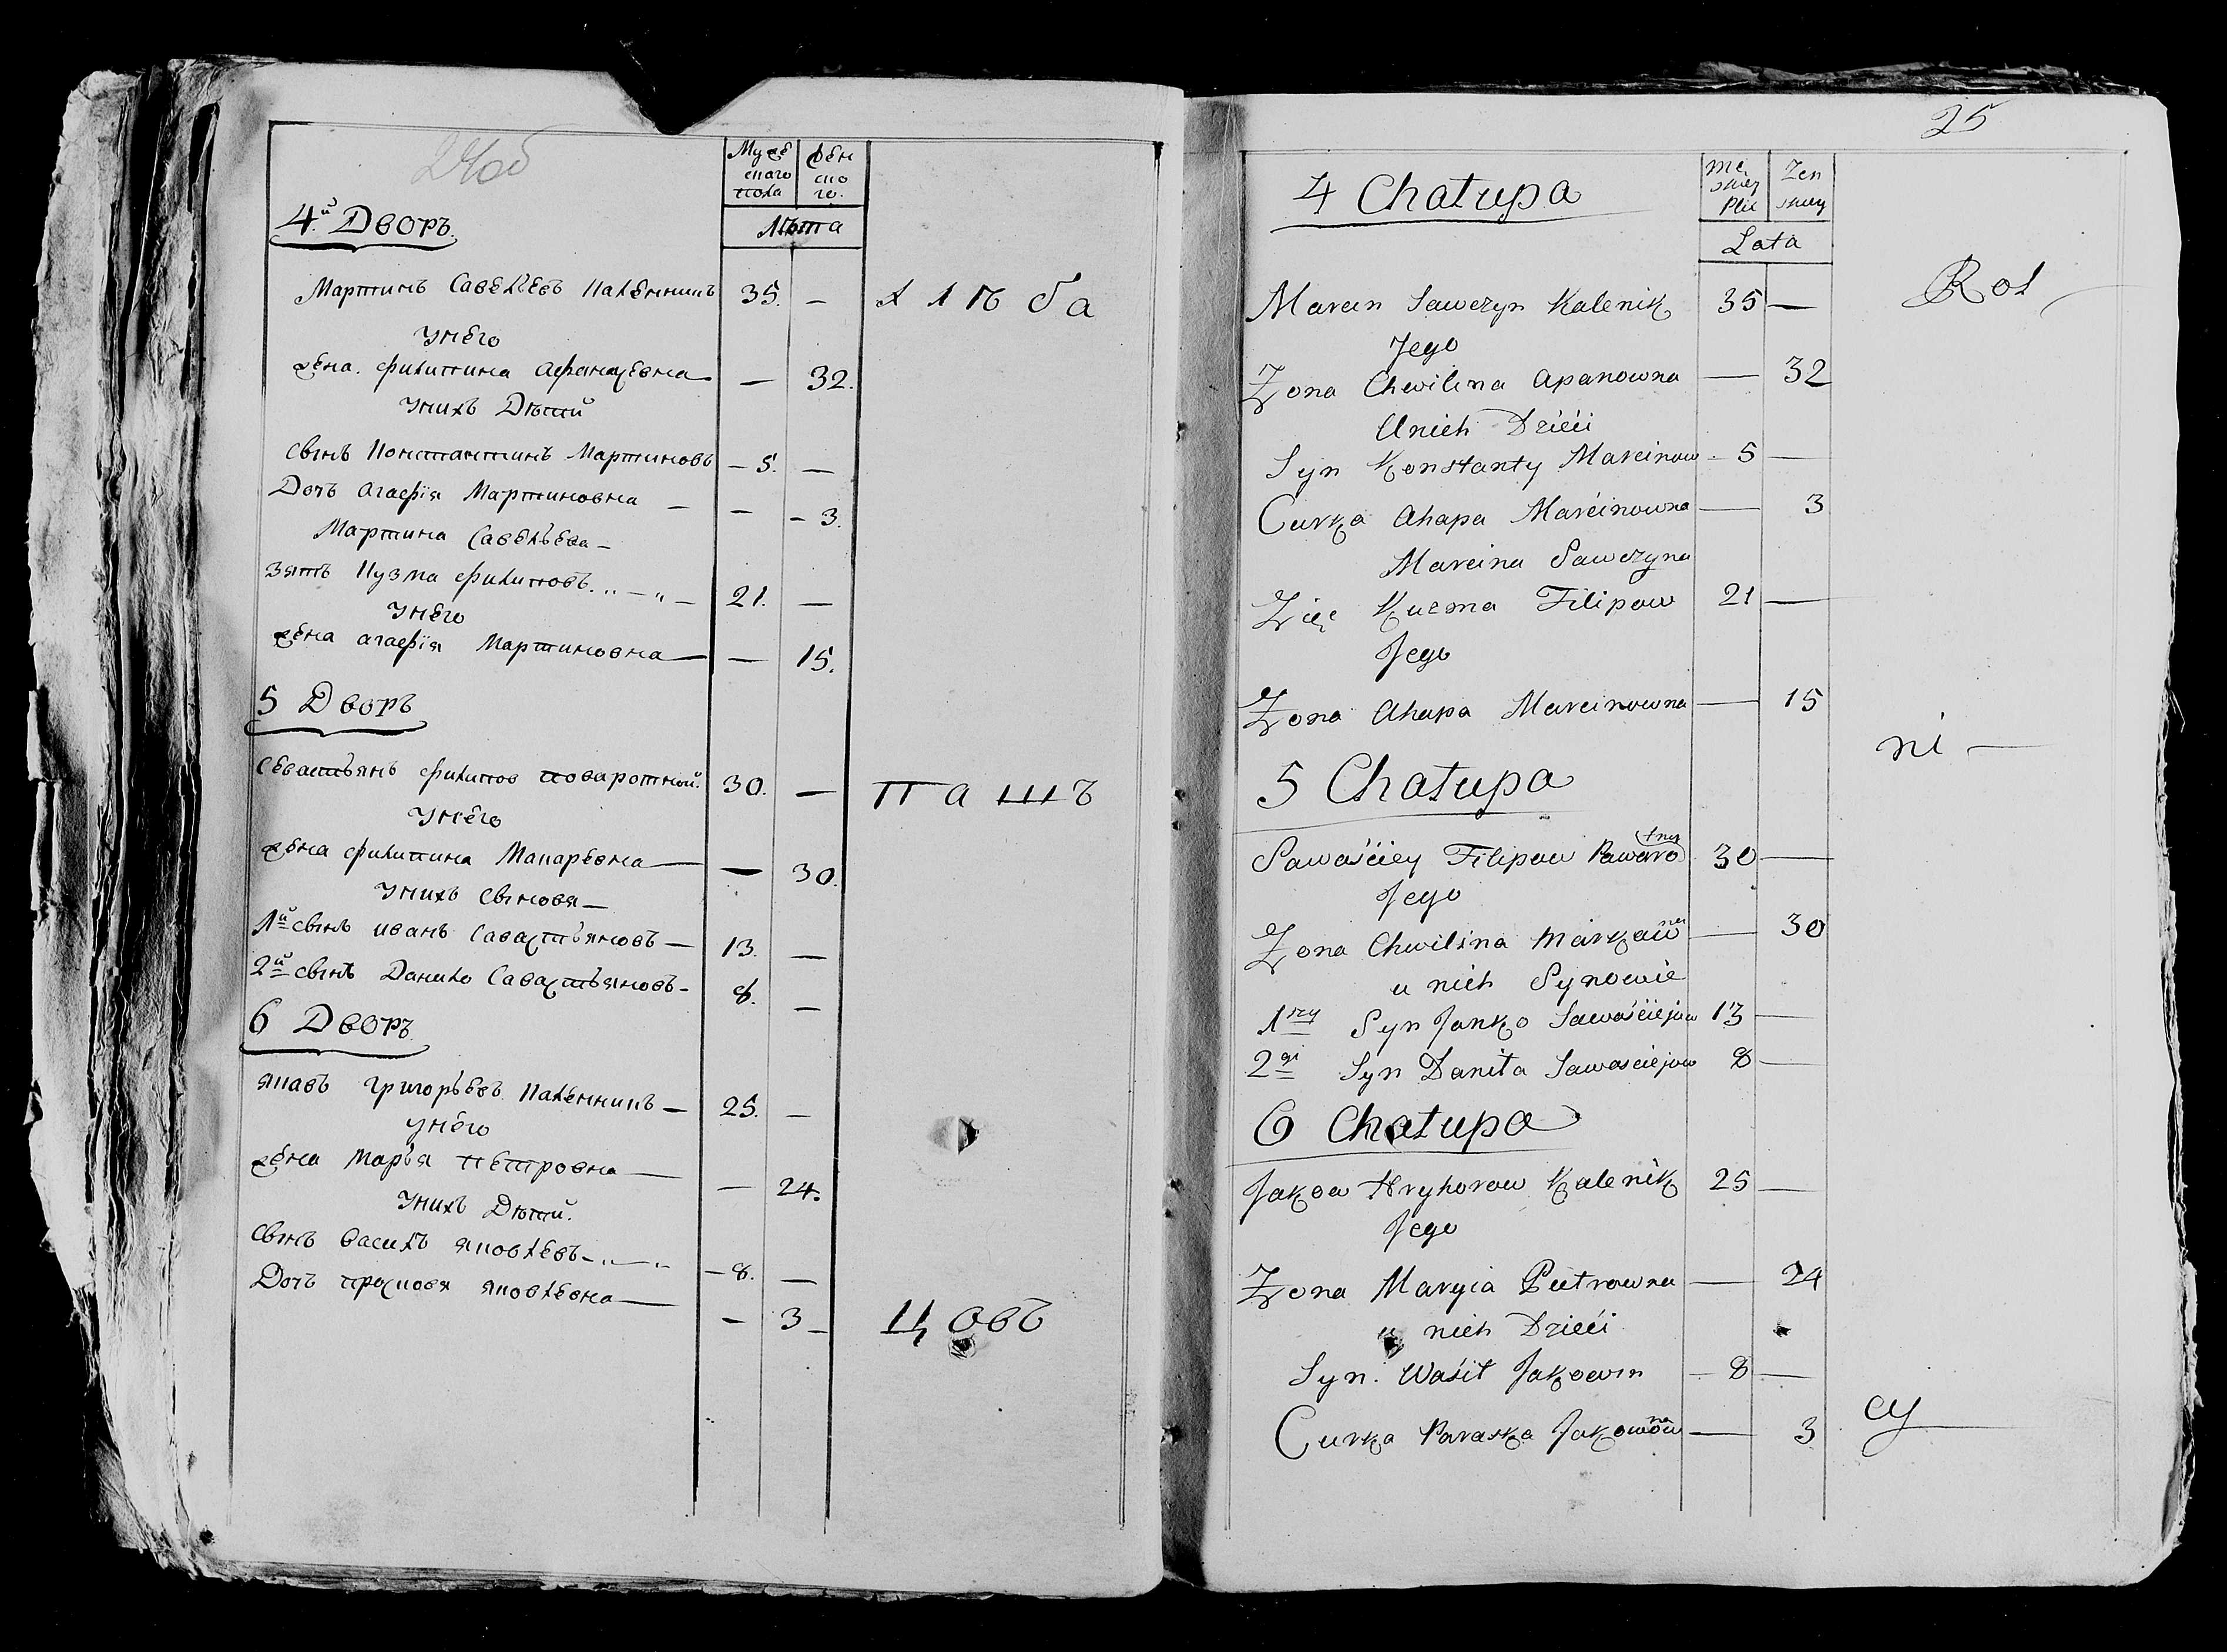 24об
Мужескаго пола
Женского.
Лѣта
4й Дворъ.
Мартинъ Савельевъ Каленникъ 35. — х л ѣ б а
У него
жена. филипина афанасьевна — 32.
У нихъ Дѣти
Сынъ Константинъ Мартиновъ — 5. —
Дочь агафія Мартиновна — — - 3.
Мартина Савельева —
зять Кузма филиповъ. „ — „ — 21. —
У него
жена агафія Мартиновна — — 15.
5 Дворъ
Севастьянъ филипов поваротный. 30. — п а ш ъ
У него
жена филипина Макаревна — — 30.
У нихъ Сыновя —
1й сынъ иванъ Савастьяновъ — 13. —
2й сынъ Данило Савастьяновъ - 8. —
6 Дворъ
яковъ григорьевъ Каленникъ — 25. —
У него
жена Марья петровна — — 24.
У нихъ Дѣти.
Сынъ василь яковлевъ - „ — „ — 8. —
Дочь прасковя яковлевна — — 3 —
ц овъ
25
Męskiey Płci
Zenskiey
Lata
4 Chałupa
Marcin Sawczyn Kalenik 35 — Rol
Jego
Zona Chwilina Apanowna — 32
U nich Dzieći
Syn Konstanty Marcinow - 5 —
Curka Ahapa Marćinowna — 3
Marcina Sawczyna
Zięć Kuzma Filipow 21 —
Jego
Zona Ahapa Marcinowna — 15
ni —
5 Chałupa
Sawaśćiey Filipow Pawarotny 30 —
Jego
Zona Chwilina Markawna — 30
u nich Synowie
1szy Syn Janko Sawaśćiejow 13 —
2gi Syn Daniła Sawasciejow 8 —
6 Chałupa
Jakow Hryhorow Kalenik 25 —
Jego
Zona Maryia Pietrowna — 24
u nich Dzieći
Syn. Waśil Jakowin — 8 —
Curka Paraska Jakowowna — 3 cy —